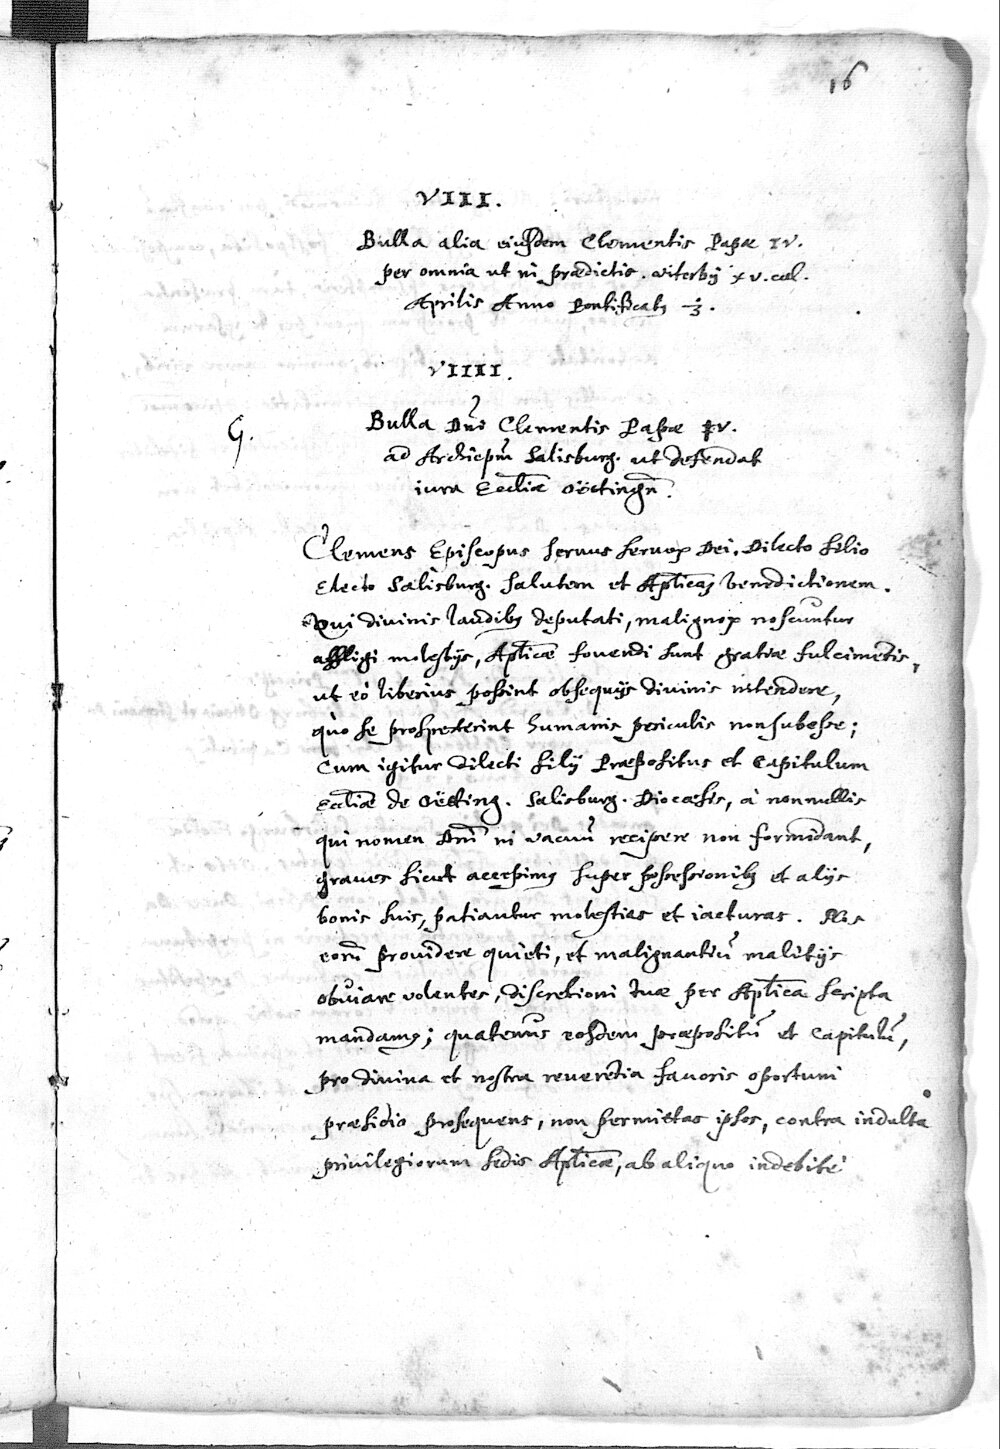 16
VIII.
Bulla alia eiusdem Clementis Papæ IV.
per omnia ut in prædictis. Viterbij XV. cal.
Aprilis Anno Pontificatus
VIIII.
G.
Bulla Dnī Clementis Papæ IV.
ad Archiepm̄ Salisburg. ut defendat
iura Eccliæ Oëtingn̄.
Clemens Episcopus seruus seruoꝝ Dei. Dilecto filio
Electo Salisburg. salutem et Aplicaꝫ benedictionem.
Qui divinis laudibꝫ deputati, malignoꝝ noscuntur
affligi molestijs, Aplicæ fovendi sunt gratiæ fulcimētis,
ut eò liberius possint obsequijs divinis intendere,
quò se prospexerint humanis periculis non subesse;
Cum igitur dilecti filij Præpositus et Capitulum
Eccliæ de Oëtting. Salisburg. Diocæsis, à nonnullis
qui nomen Dnī in vacuū recipere non formidant,
graves sicut accepimꝯ super possessionibꝫ et alijs
bonis suis, patiantur molestias et iacturas. Nos
eorū prouidere quieti, et malignantiū malitijs
obviare volentes, discretioni tuæ per Aplica scripta
mandamꝯ; quatenus eosdem præpositū et Capitulū,
pro divina et nostra reverētia favoris oportuni
præsidio prosequens, non permittas ipsos, contra indulta
privilegiorum sedis Aplicæ, ab aliquo indebitè